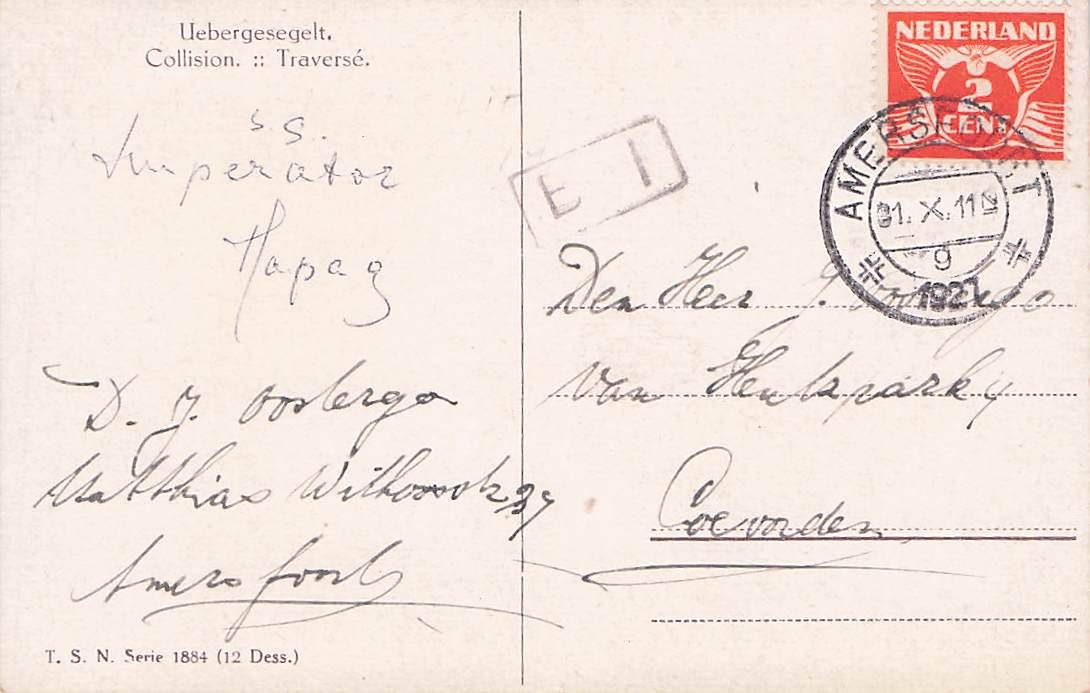 Uebergesegelt.
Collision. :: Traversé.
S.S.
Imperator
Hapag
D. J. Oosterga
Matthias Withoosstr 37
Amersfoort
T. S. N. Serie 1884 (12 Dess.)
NEDERLAND
2
CENT
AMERSFOORT
31. X. 11 N
9
1927
E I
Den Heer J. Oosterga
van Heutszpark 4
Coevorden